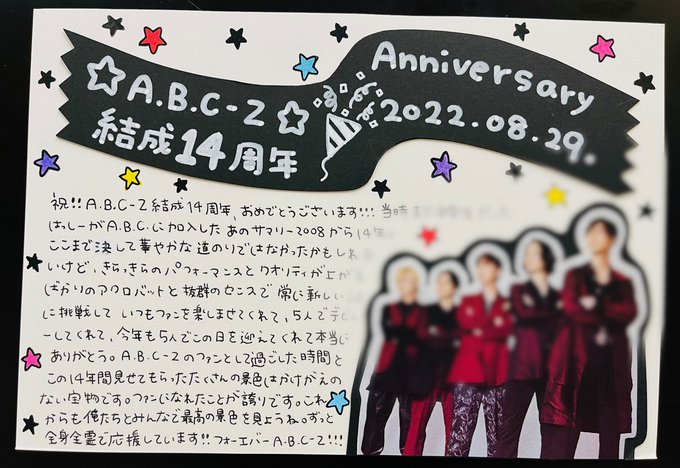 ☆A.B.C-Z☆
結成14周年
Anniversary
2022.08.29.
祝!!A.B.C-Z結成14周年、おめでとうございます!!!当時
はっしーがA.B.C.に加入したあのサマリー2008から14年
ここまで決して華やかな道のりではなかったかもしれ
いけど、きらっきらのパフォーマンスとクオリティが上が
ばかりのアクロバットと抜群のセンスで常に新しい
に挑戦していつもファンを楽しませてくれて、5人でデビ
ーしてくれて、今年も5人でこの日を迎えてくれて本当に
ありがとう。A.B.C-Zのファンとして過ごした時間と
この14年間見せてもらったたくさんの景色はかけがえの
ない宝物です。ファンになれたことが誇りです。これ
からも俺たちとみんなで最高の景色を見ようね。ずっと
全身全霊で応援しています!!フォーエバーA.B.C-Z!!!